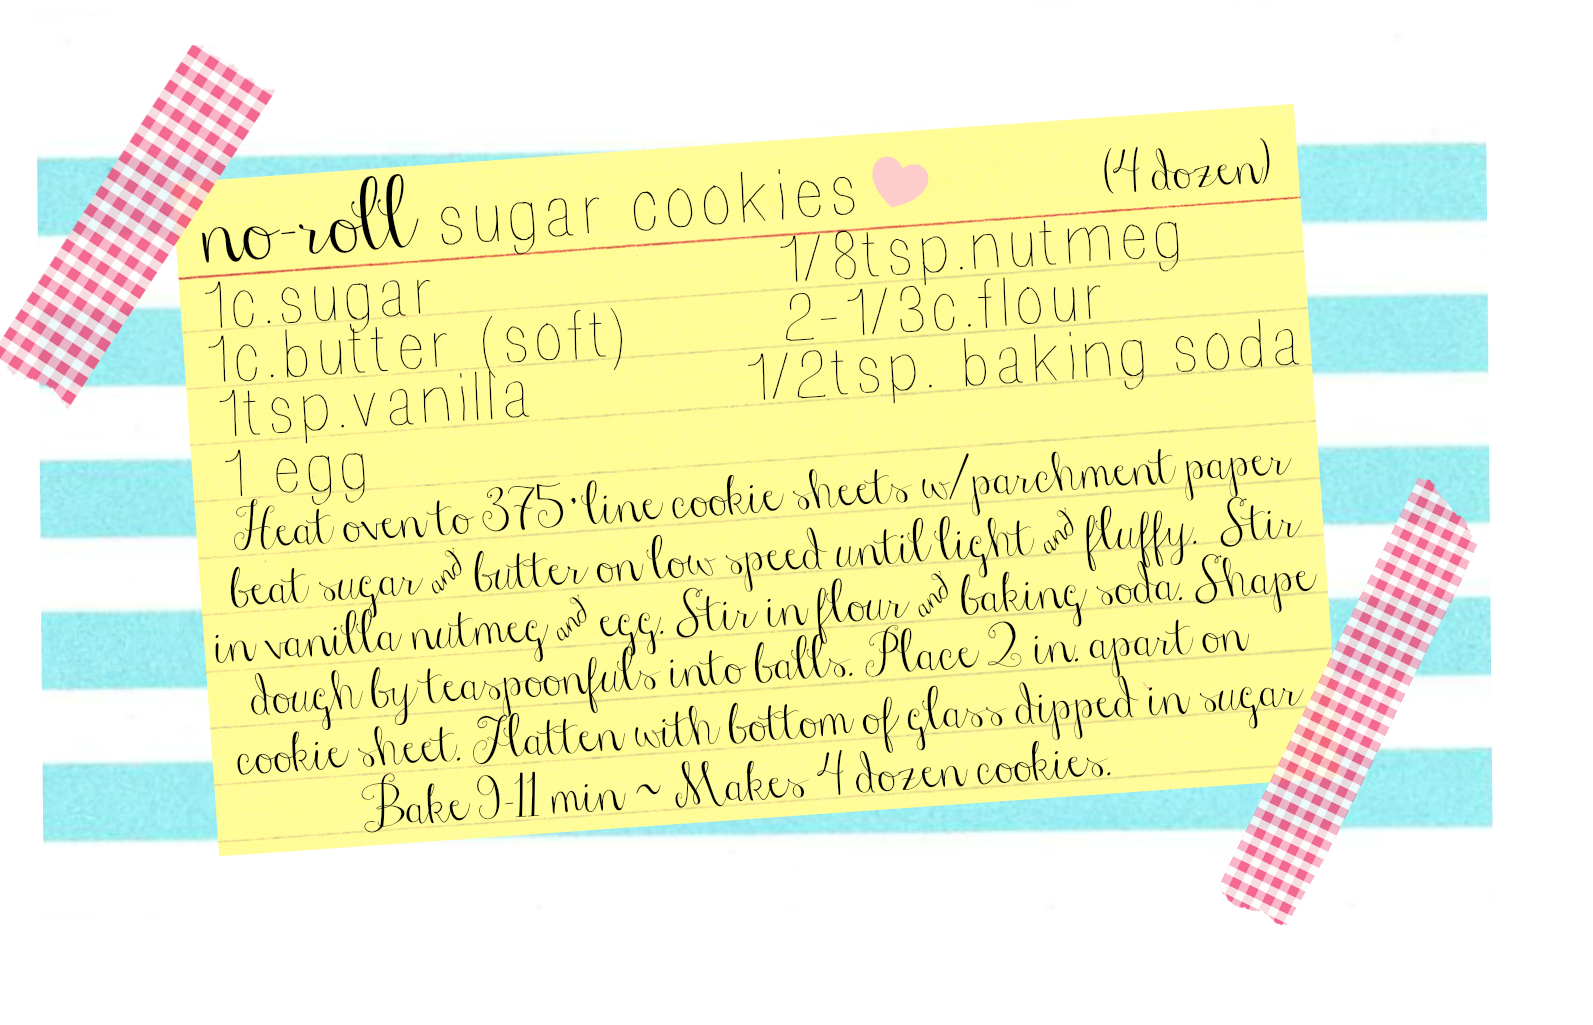 no-roll sugar cookies
(4 dozen)
1c.sugar
1c.butter (soft)
1tsp.vanilla
1 egg
1/8tsp.nutmeg
2-1/3c.flour
1/2tsp. baking soda
Heat oven to 375• line cookie sheets w/parchment paper
beat sugar and butter on low speed until light and fluffy. Stir
in vanilla nutmeg and egg. Stir in flour and baking soda. Shape
dough by teaspoonfuls into balls. Place 2 in. apart on
cookie sheet. Flatten with bottom of glass dipped in sugar
Bake 9-11 min ~ Makes 4 dozen cookies.